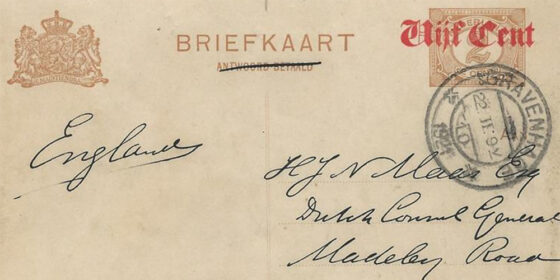 Vijf Cent
BRIEFKAART
ANTWOORD BETAALD
'SGRAVENHAGE
1921
England
H J N Maas Esq
Dutch Consul General
Madeley Road